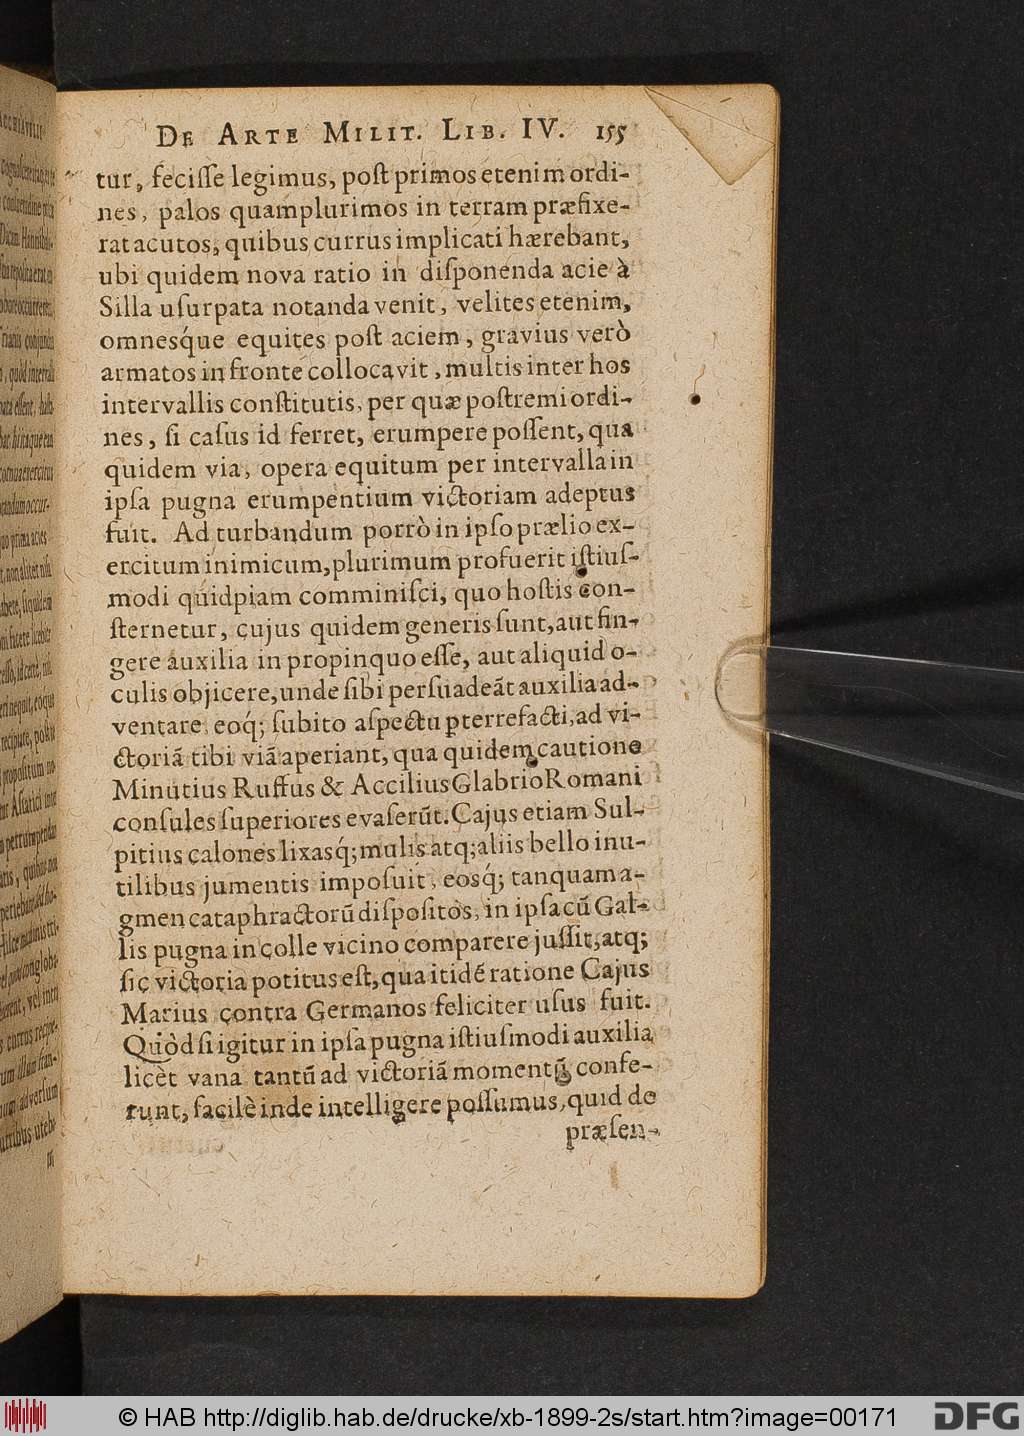 DE ARTE MILIT. LIB. IV. 155
tur, feciſſe legimus, poſt primos etenim ordi-
nes, palos quamplurimos in terram præfixe-
rat acutos, quibus currus implicati hærebant,
ubi quidem nova ratio in diſponenda acie à
Silla uſurpata notanda venit, velites etenim,
omneſq́ue equites poſt aciem, gravius verò
armatos in fronte collocavit, multis inter hos
intervallis conſtitutis, per quæ poſtremi ordi-
nes, ſi caſus id ferret, erumpere poſſent, qua
quidem via, opera equitum per intervalla in
ipſa pugna erumpentium victoriam adeptus
fuit. Ad turbandum porrò in ipſo prælio ex-
ercitum inimicum, plurimum profuerit iſtiuſ-
modi quidpiam comminiſci, quo hoſtis con-
ſternetur, cujus quidem generis ſunt, aut fin-
gere auxilia in propinquo eſſe, aut aliquid o-
culis objicere, unde ſibi perſuadeāt auxilia ad-
ventare, eoq́; ſubito aſpectu pterrefacti, ad vi-
ctoriā tibi viā aperiant, qua quidem cautione
Minutius Ruffus & Accilius Glabrio Romani
conſules ſuperiores evaſerūt. Cajus etiam Sul-
pitius calones lixasq́; mulis atq; aliis bello inu-
tilibus jumentis impoſuit, eosq́; tanquam a-
gmen cataphractorū diſpoſitos, in ipſa cū Gal-
lis pugna in colle vicino comparere juſſit, atq;
ſic victoria potitus eſt, qua itidē ratione Cajus
Marius contra Germanos feliciter uſus fuit.
Quòd ſi igitur in ipſa pugna iſtiuſmodi auxilia
licèt vana tantū ad victoriā momentū confe-
runt, facilè inde intelligere poſſumus, quid de
præſen-
© HAB http://diglib.hab.de/drucke/xb-1899-2s/start.htm?image=00171
DFG